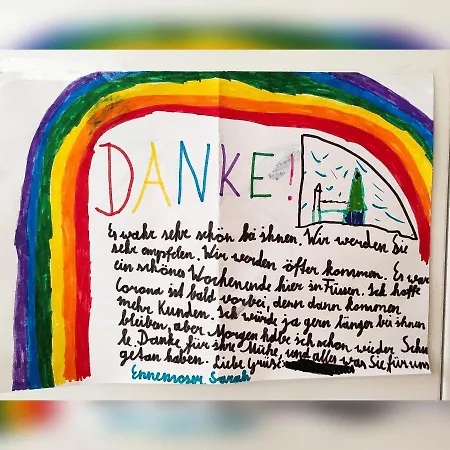 DANKE!
Es wahr sehr schön bei ihnen. Wir werden Sie
sehr empfelen. Wir werden öfter kommen. Es war
ein schönes Wochenende hier in Füssen. Ich hoffe
Corona ist bald vorbei, denn dann kommen
mehr Kunden. Ich würde ja gern länger bei ihnen
bleiben, aber Morgen habe ich schon wieder Schu
le. Danke für ihre Mühe, und alles was Sie für uns
getan haben. Liebe Grüse:
Ennemoser Sarah